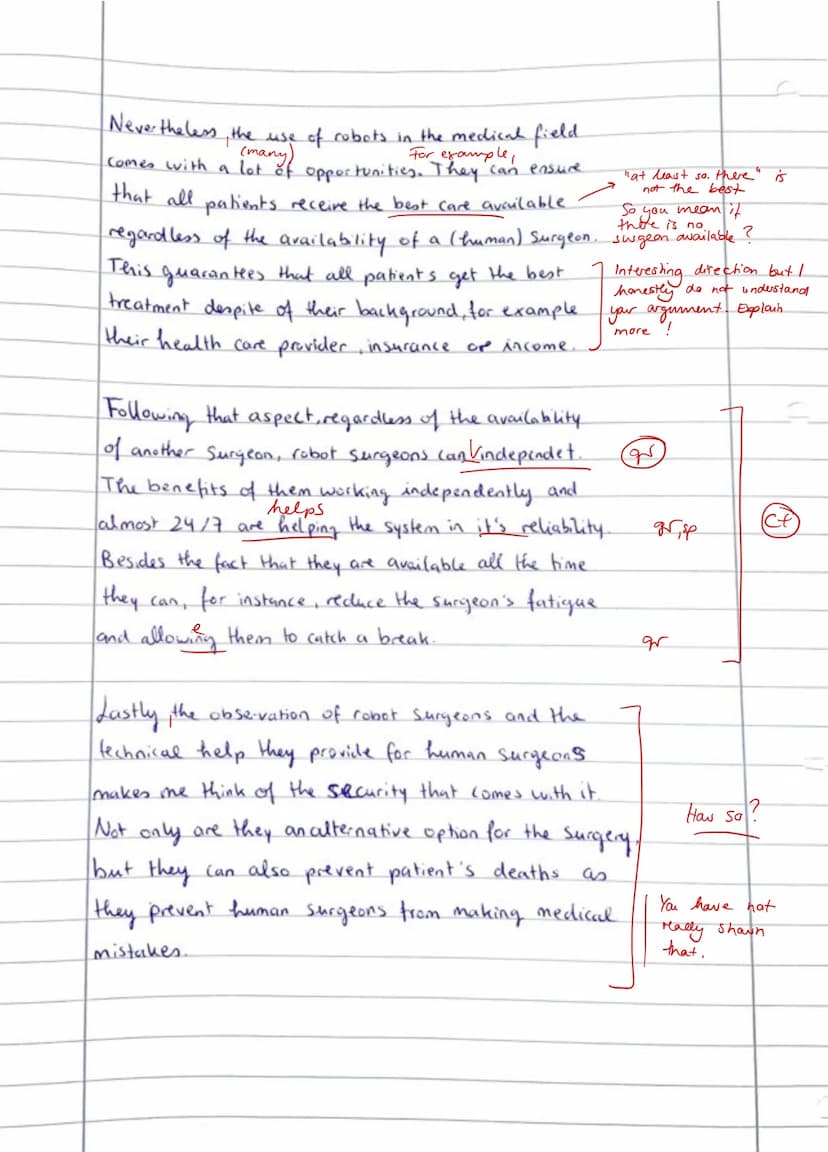 Nevertheless, the use of robots in the medical field
(many) For example,
comes with a lot of opportunities. They can ensure
"at least so. there" is
not the best
that all patients receive the best care available
So you mean if
there is no
surgeon available?
regardless of the availability of a (human) Surgeon.
This guarantees that all patients get the best
Interesting direction but I
honestly do not understand
your argument. Explain
more!
treatment despite of their background, for example
their health care provider, insurance or income.
Following that aspect, regardless of the availability
of another Surgeon, robot surgeons can V independet.
gr
The benefits of them working independently and
helps
almost 24/7 are helping the system in it's reliability.
gr, sp
Ct
Besides the fact that they are available all the time
they can, for instance, reduce the surgeon's fatigue
e
and allowing them to catch a break.
gr
Lastly, the observation of robot surgeons and the
technical help they provide for human surgeons
makes me think of the security that comes with it.
How so?
Not only are they an alternative option for the surgery,
but they can also prevent patient's deaths as
they prevent human surgeons from making medical
mistakes.
You have not
really shown
that.